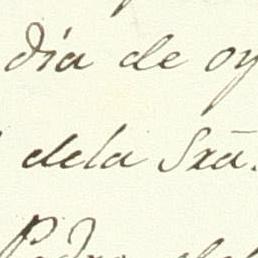 dia de oy
dela Sra.
Pedro